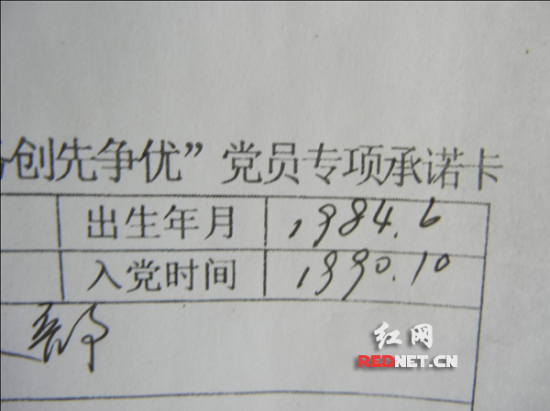 创先争优”党员专项承诺卡
出生年月 1984.6
入党时间 1990.10
部
红网
REDNET.CN